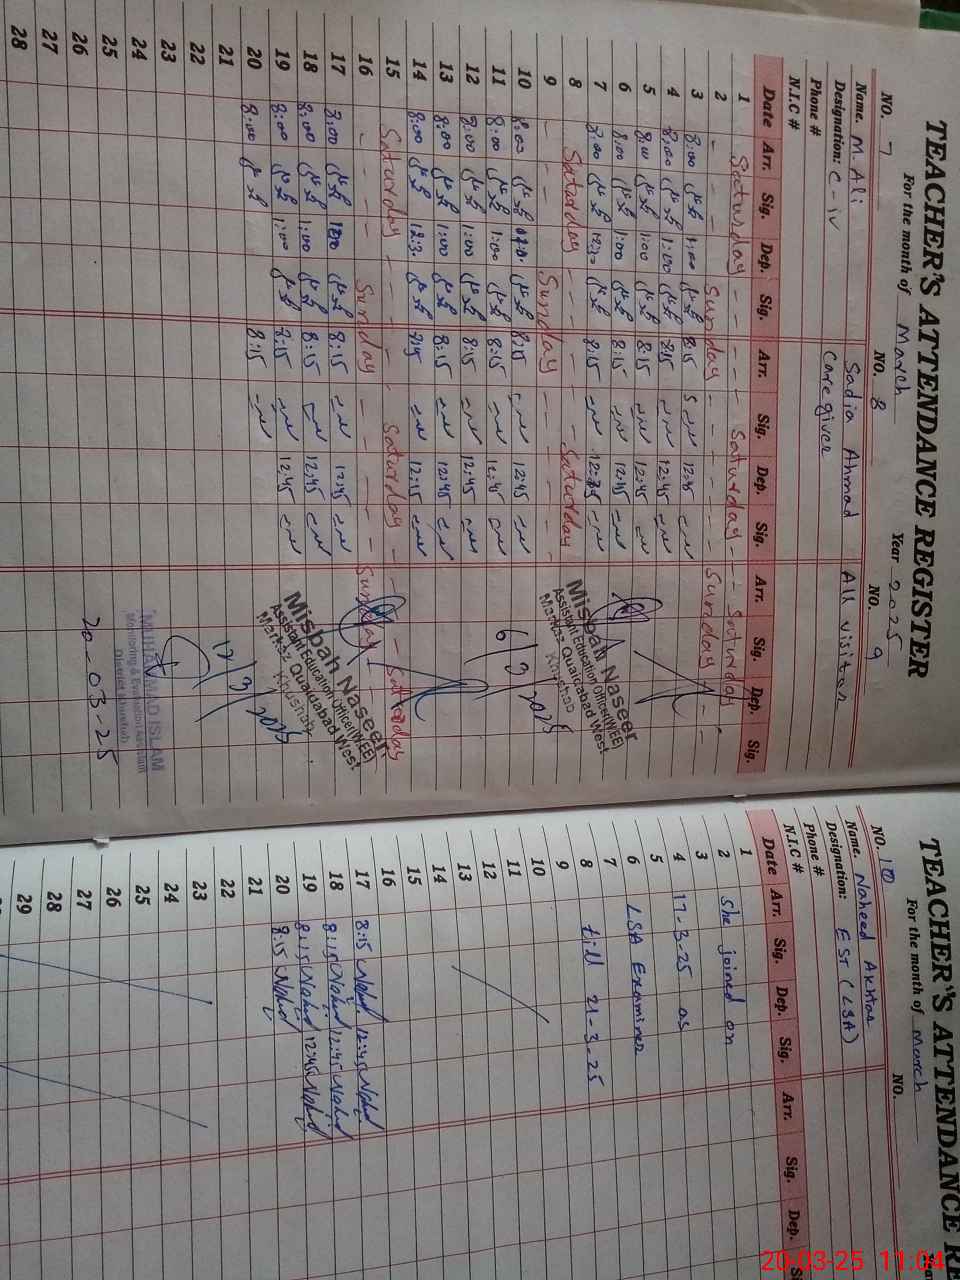 TEACHER'S ATTENDANCE REGISTER
For the month of March Year 2025
NO. 7 NO. 8 NO. 9
Name. M. Ali Sadia Ahmad All visitor
Designation: C-iv Caregiver
Phone #
N.I.C #
Date Arr. Sig. Dep. Sig. Arr. Sig. Dep. Sig. Arr. Sig. Dep. Sig.
1 Saturday - - - Saturday - - Saturday
2 - - - Sunday - - - - - Sunday - -
3 8:00 1:00 8:15 12:45
4 8:00 1:00 8:15 12:45
5 8:00 1:00 8:15 12:45
6 8:00 1:00 8:15 12:45
7 8:00 12:30 8:15
8 Saturday - - - - - Saturday
9 - - - Sunday - - - - -
10 8:00 8:15 12:45
11 8:00 1:00 8:15 12:45
12 8:00 1:00 8:15 12:45
13 8:00 1:00 8:15 12:45
14 8:00 12:30 8:15 12:15
15 Saturday - - - - Saturday - - Saturday
16 - - - Sunday - - - - Sunday
17 8:00 1:00 8:15 12:45
18 8:00 1:00 8:15 12:45
19 8:00 1:00 8:15 12:45
20 8:00 8:15
21
22
23
24
25
26
27
28
Misbah Naseer
Assistant Education Officer(WEE)
Markaz Quaidabad West
Khushab
6/3/2025
Misbah Naseer
Assistant Education Officer(WEE)
Markaz Quaidabad West
Khushab
17/3/2025
MUHAMMAD ISLAM
Monitoring & Evaluation Assistant
District Khushab
20-03-25
TEACHER'S ATTENDANCE RE
For the month of March
NO. 10 NO.
Name. Naheed Akhtar
Designation: EST (LSA)
Phone #
N.I.C #
Date Arr. Sig. Dep. Sig. Arr. Sig. Dep. S
1
2 She joined on
3
4 17-3-25 as
5
6 LSA Examiner
7
8 till 21-3-25
9
10
11
12
13
14
15
16
17 8:15 Nahid 12:45 Nahid
18 8:15 Nahid 12:45 Nahid
19 8:15 Nahid 12:45 Nahid
20 8:15 Nahid
21
22
23
24
25
26
27
28
29
20-03-25 11:04